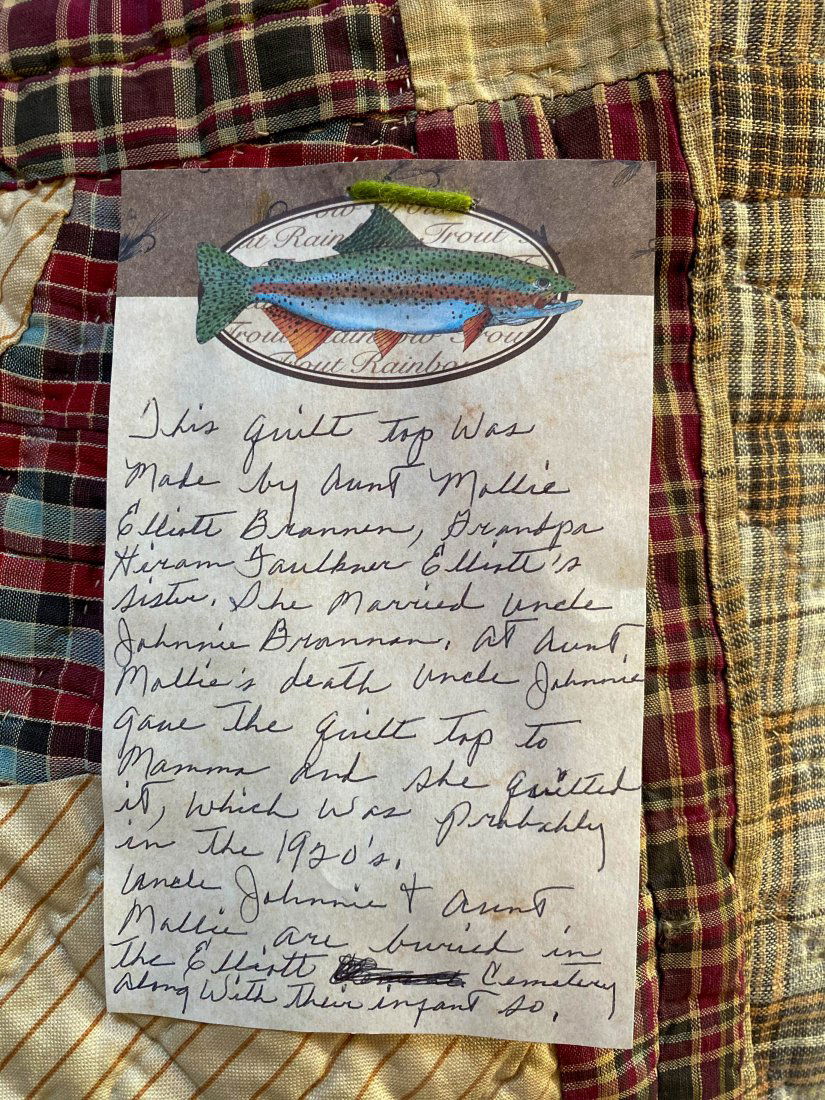 ow Rainbow Trout
ut Rainbow Trout
Trout Rainbow Trout
Trout Rainbo
This quilt top Was
Made by Aunt Mollie
Elliott Brannen, Grandpa
Hiram Faulkner Elliott's
sister. She Married Uncle
Johnnie Brannan. At Aunt
Mollie's death Uncle Johnnie
gave the quilt top to
Mamma and she quilted
it, which was probably
in the 1920's.
Uncle Johnnie + Aunt
Mollie are buried in
the Elliott Cemetery
along with their infant so.